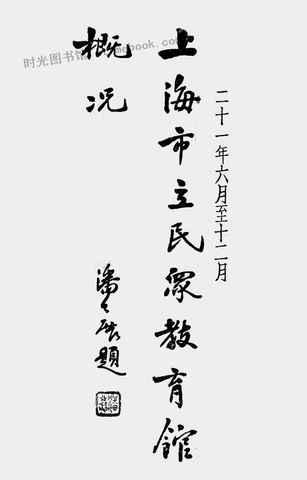 二十一年六月至十二月
上海市立民眾教育館
概况
潘公展題
时光图书馆